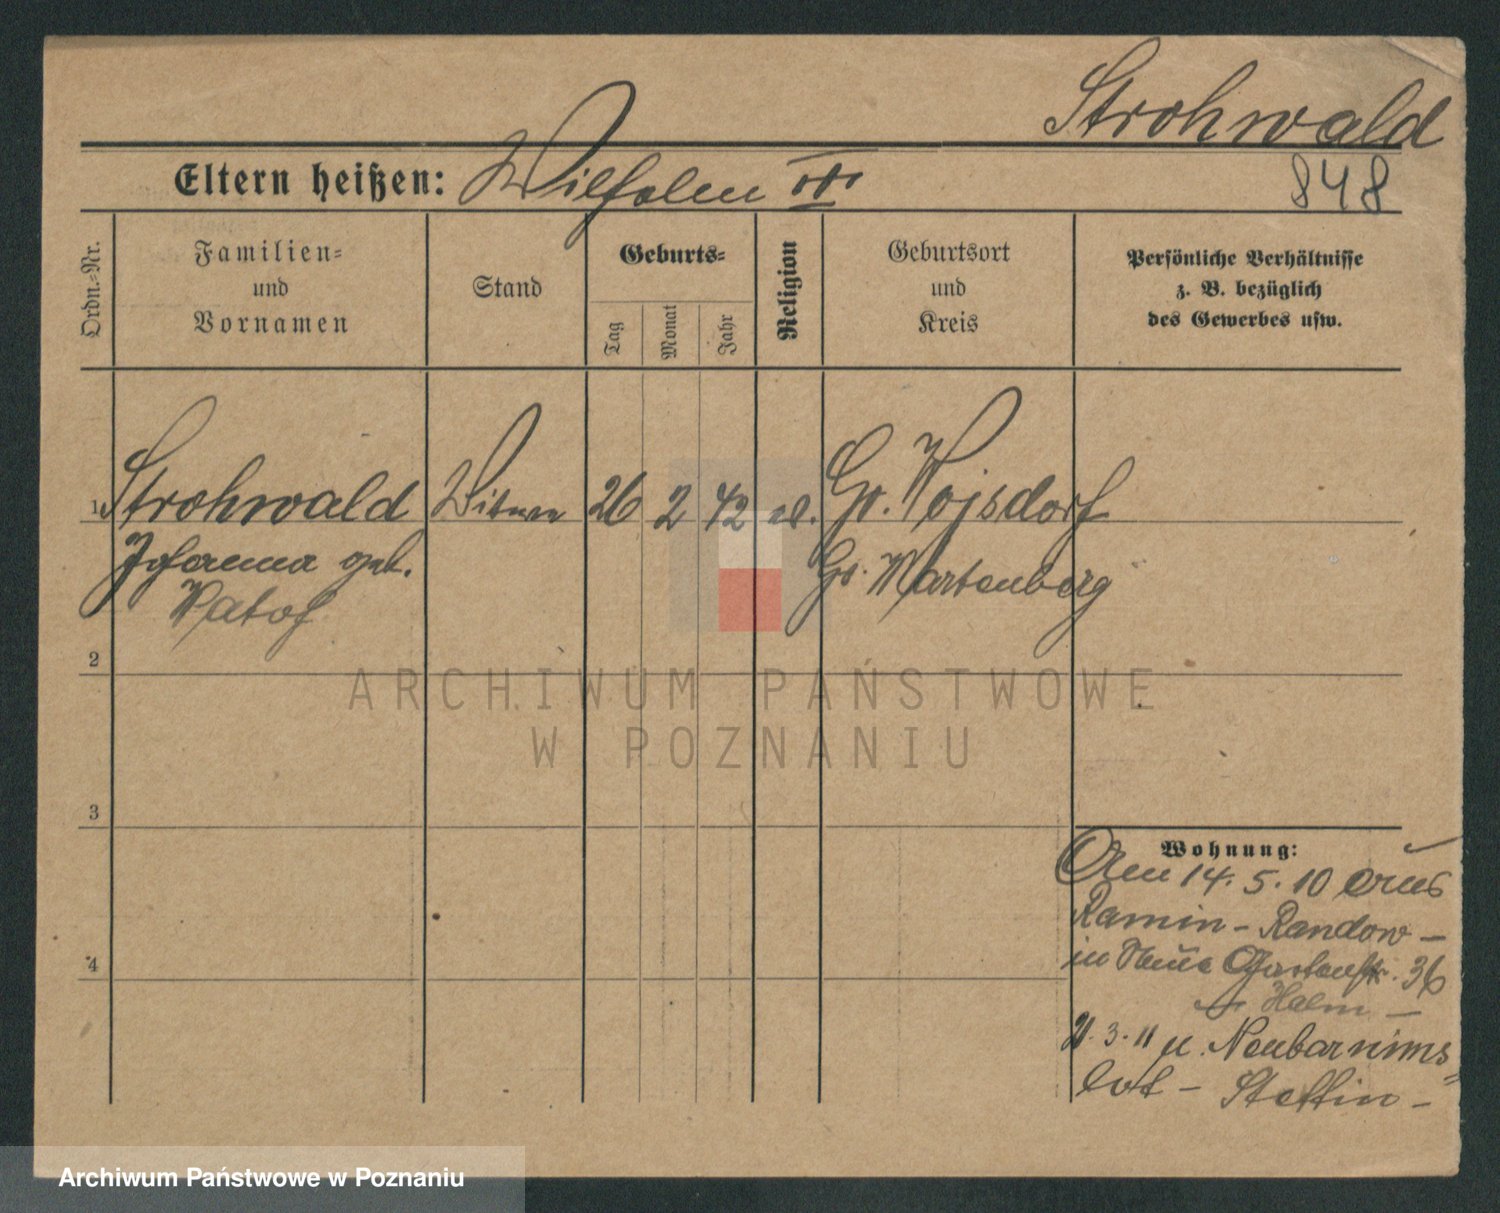 Strohwald
Eltern heißen: Wilhelm
848
Ordn.-Nr.
Familien-
und
Vornamen
Stand
Geburts-
Tag
Monat
Jahr
Religion
Geburtsort
und
Kreis
Persönliche Verhältnisse
z. B. bezüglich
des Gewerbes usw.
1 Strohwald Witwe 26 2 42 Gr. Wojsdorf
Johanna geb. Gr. Wartenberg
Watof
2
3
4
Wohnung:
Am 14. 5. 10 aus
Ramin - Randow -
in Neue Gartenstr. 36
Halm -
21. 3. 11 n. Neubarnims=
lot - Stettin -
ARCHIWUM PAŃSTWOWE
W POZNANIU
Archiwum Państwowe w Poznaniu